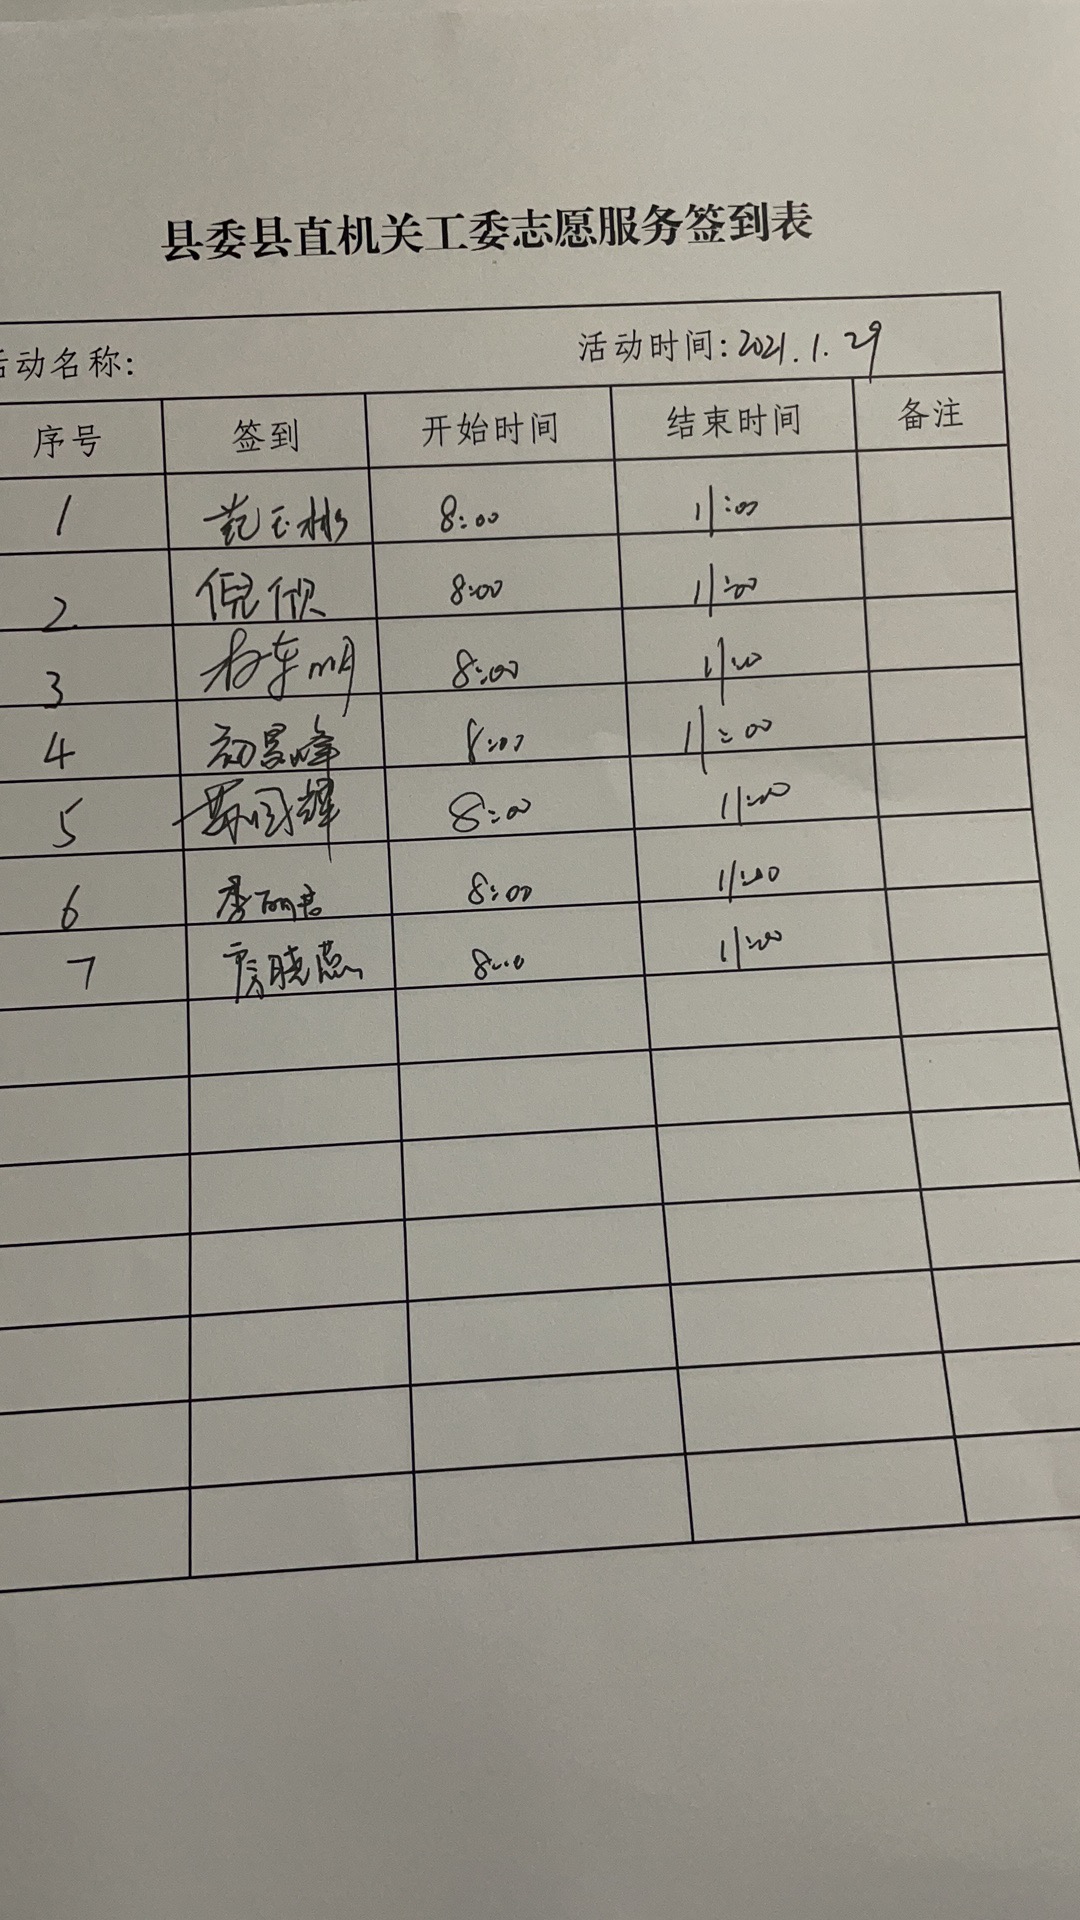 县委县直机关工委志愿服务签到表
活动名称: 活动时间: 2021.1.29
序号 签到 开始时间 结束时间 备注
1 范玉彬 8:00 11:00
2 倪欣 8:00 11:00
3 8:00 11:00
4 峰 8:00 11:00
5 辉 8:00 11:00
6 李丽君 8:00 11:00
7 房晓燕 8:00 11:00